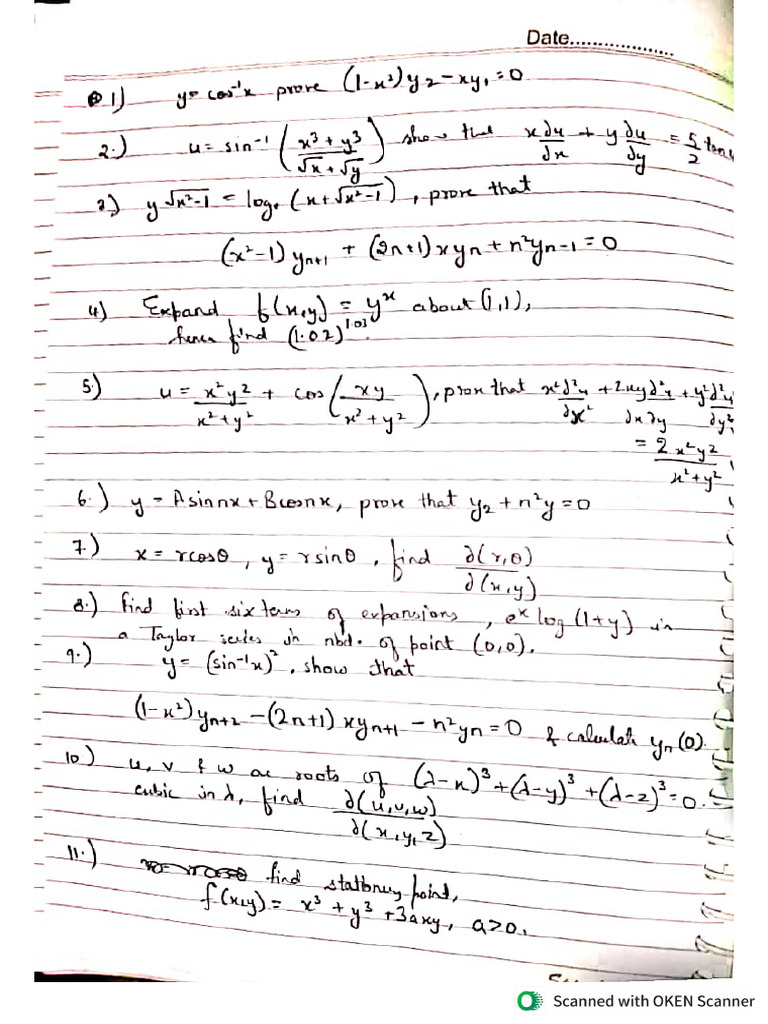 Date....................
1) y = cos⁻¹x prove (1-x²)y₂ - xy₁ = 0
2.) u = sin⁻¹ ( (x³ + y³)/(√x + √y) ) show that x ∂u/∂x + y ∂u/∂y = 5/2 tan u
3) y √x²-1 = logₑ (x + √x²-1), prove that
(x²-1) yₙ₊₁ + (2n+1) xyₙ + n²yₙ₋₁ = 0
4) Expand f(x,y) = yˣ about (1,1),
hence find (1.02)^1.03.
5.) u = x²y²/(x²+y²) + cos ( xy/(x²+y²) ), prove that x²∂²u/∂x² + 2xy∂²u/∂x∂y + y²∂²u/∂y²
= 2x²y²/(x²+y²)
6.) y = A sin nx + B cos nx, prove that y₂ + n²y = 0
7.) x = r cosθ, y = r sinθ, find ∂(r,θ)/∂(x,y)
8.) Find first six terms of expansions, eˣ log(1+y) in
a Taylor series in nbd. of point (0,0).
9.) y = (sin⁻¹x)², show that
(1-x²)yₙ₊₂ - (2n+1) xyₙ₊₁ - n²yₙ = 0 & calculate yₙ(0).
10) u, v & w are roots of (λ-x)³ + (λ-y)³ + (λ-z)³ = 0.
cubic in λ, find ∂(u,v,w)/∂(x,y,z)
11.) find stationary point,
f(x,y) = x³ + y³ + 3axy, a>0.
Scanned with OKEN Scanner